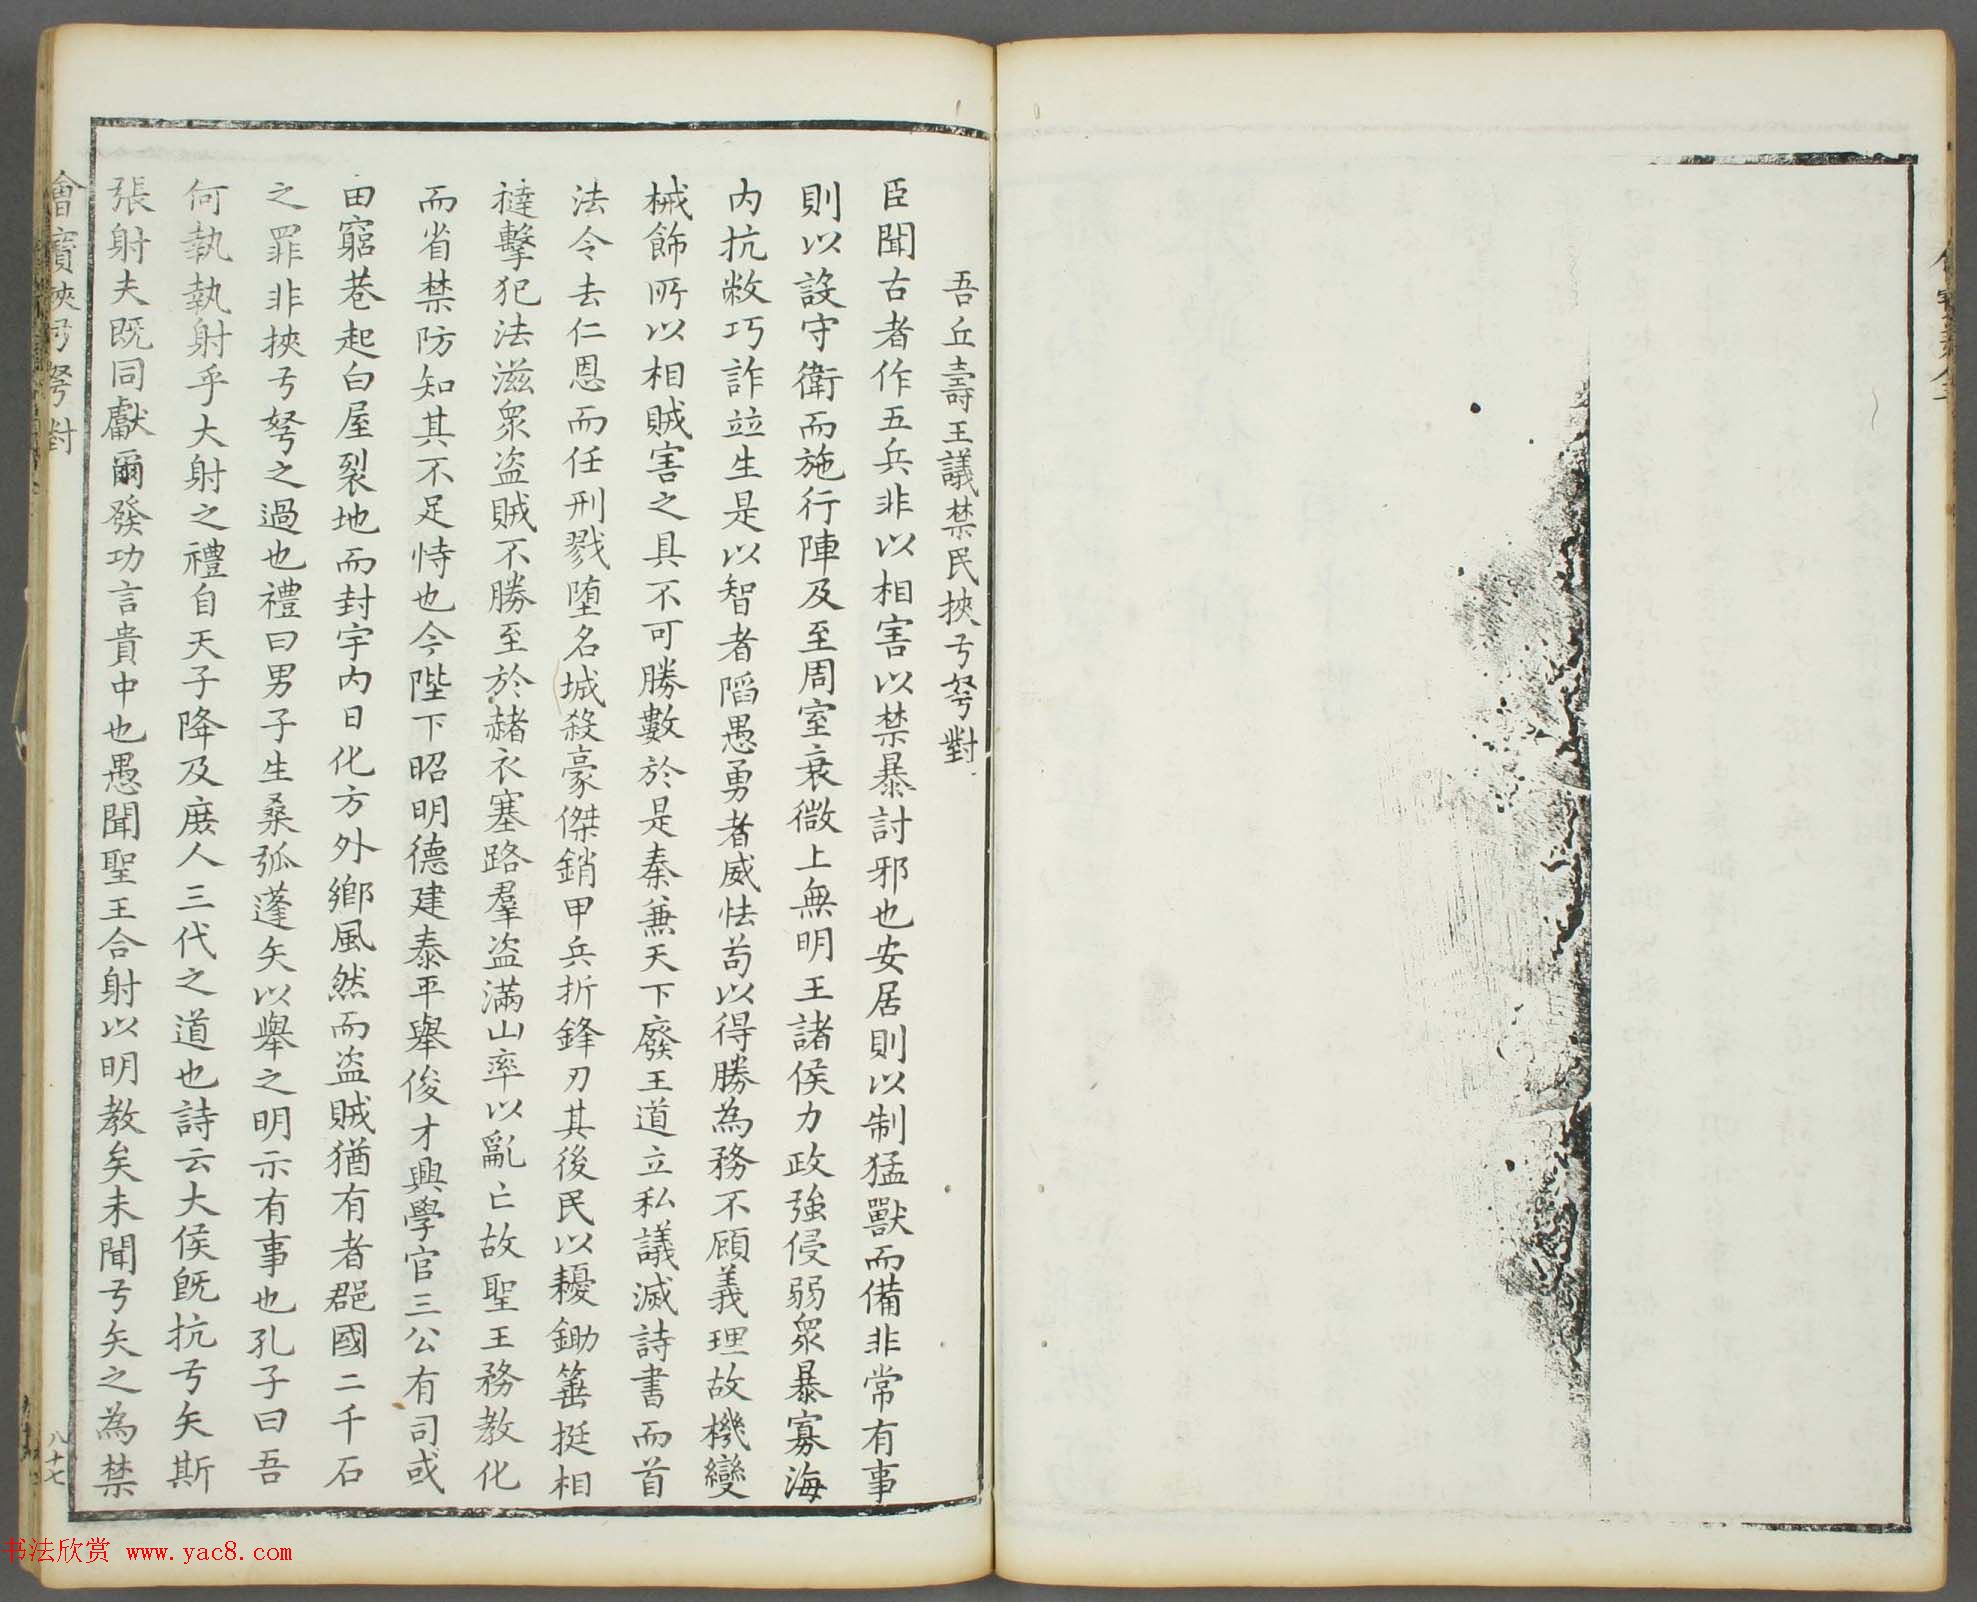 吾丘壽王議禁民挾弓弩對
臣聞古者作五兵非以相害以禁暴討邪也安居則以制猛獸而備非常有事
則以設守衛而施行陣及至周室衰微上無明王諸侯力政強侵弱眾暴寡海
内抗敝巧詐竝生是以智者陷愚勇者威怯苟以得勝為務不顧義理故機變
械飾所以相賊害之具不可勝數於是秦兼天下廢王道立私議滅詩書而首
法令去仁恩而任刑戮堕名城殺豪傑銷甲兵折鋒刃其後民以耰鋤箠挺相
撻擊犯法滋眾盗賊不勝至於赭衣塞路羣盗滿山率以亂亡故聖王務教化
而省禁防知其不足恃也今陛下昭明德建泰平舉俊才興學官三公有司或
由窮巷起白屋裂地而封宇内日化方外鄉風然而盗賊猶有者郡國二千石
之罪非挾弓弩之過也禮曰男子生桑弧蓬矢以舉之明示有事也孔子曰吾
何執執射乎大射之禮自天子降及庶人三代之道也詩云大侯旣抗弓矢斯
張射夫既同獻爾發功言貴中也愚聞聖王合射以明教矣未聞弓矢之為禁
會寶 挾弓弩對
八十七
书法欣赏 www.yac8.com